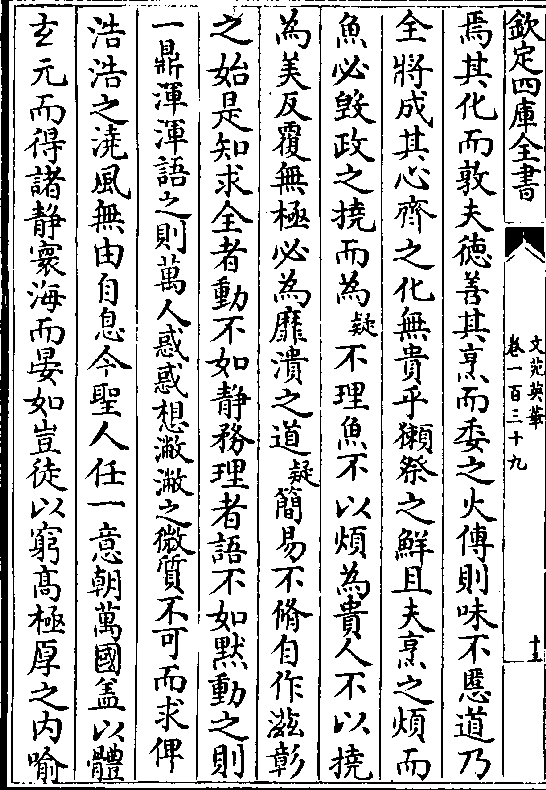 欽定四庫全書
文苑英華
卷一百三十九
十五
焉其化而敦夫徳善其烹而委之火傳則味不慝道乃
全將成其心齊之化無貴乎獺祭之鮮且夫烹之煩而
魚必毁政之撓而為疑不理魚不以煩為貴人不以撓
為美反覆無極必為靡潰之道疑簡易不脩自作滋彰
之始是知求全者動不如静務理者語不如默動之則
一鼎渾渾語之則萬人惑惑想濔濔之微質不可而求俾
浩浩之澆風無由自息今聖人任一意朝萬國盖以體
玄元而得諸静寰海而晏如豈徒以窮髙極厚之内喻